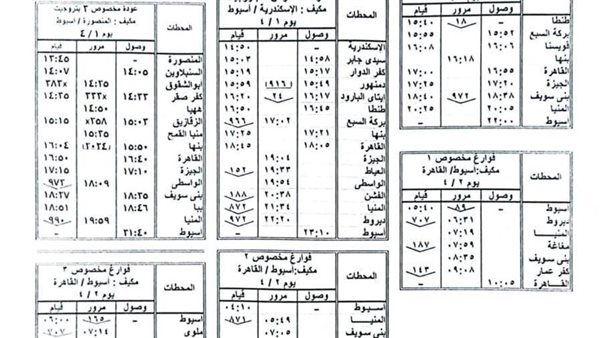 المحطات
طنطا - ١٨ ١٥:٤٠
بركة السبع ١٥:٥٢
قويسنا ١٦:٠٦ ١٦:٠٨
بنها ١٦:١٨
القاهرة ١٦:٥٥ ١٧:٠٠
الجيزة
بنى سويف ٩٧٢ ١٨:٣٨
المنيا ٢٠:٠٥
أسيوط ٢٢:٠٠ -
فوارغ مخصوص ١
مكيف : أسيوط/ القاهرة
يوم ٤/٢
المحطات وصول مرور قيام
أسيوط - ٨٩ ٠٥:٤٠
ديروط ٠٦:٣١ ٧٠٧
المنيا ٠٧:١٩
مغاغة ٠٧:٥٩ ١٨٧
بنى سويف
كفر عمار ٠٩:٠٨ ١٤٣
القاهرة ١٠:٠٥ -
مكيف : الاسكندرية / أسيوط
يوم ٤/١
المحطات وصول مرور قيام
الاسكندرية - ١٤:٥٠
سيدى جابر ١٤:٥٨ ١٥:٠٣
كفر الدوار ١٥:١٧ ١٥:١٩
دمنهور ١٥:٤٩ (٩١٦) ١٥:٥٩
ايتاى البارود ١٦:١٧ ٢٤ ١٦:٢١
طنطا ١٦:٤٥ ١٦:٥٠
بركة السبع ١٧:٠٢ ٩٦٦
بنها ١٧:٢١ ١٧:٢٥
القاهرة ١٨:٠٥ ١٨:٤٥
الجيزة ١٩:٠٤
العياط ١٩:٣٤ ١٥٢
الواسطى ١٩:٥٤
الفشن ٢٠:٣٨ ١٨٨
المنيا ٢١:٣٤ ٨٧٢
ديروط ٢٢:٢٠ ٩٧٢
أسيوط ٢٣:١٠ -
فوارغ مخصوص ٢
مكيف: أسيوط/ القاهرة
يوم ٤/٢
المحطات وصول مرور قيام
أسيوط - ٠٤:١٠
المنيا ٠٥:٤٩ ٨٧١
بنى سويف ٠٧:٠٥
عودة مخصوص ٣ بتروجيت
مكيف : المنصورة / أسيوط
يوم ٤/١
المحطات وصول مرور قيام
المنصورة - ١٣:٤٥
السنبلاوين ١٤:٠٥ ١٤:٠٧
ابوالشقوق ١٤:٢٣ ٣٨٣×
كفر صقر ١٤:٣٣ ٣٣٣× ١٤:٣٥
ههيا ١٤:٥٠
الزقازيق ١٥:١٠ ٣٥٨× ١٥:١٥
منيا القمح ١٥:٣٥
بنها ١٥:٥٤ (٢٠٢٤) ١٦:٠٤
القاهرة ١٦:٤٠ ١٦:٥٠
الجيزة ١٧:١٠ ١٧:١٥
الواسطى ١٨:٠٩ ٩٧٣
بنى سويف ١٨:٢٧ ١٨:٣٥
ببا ١٨:٤٦ ١٨:٥١
المنيا ١٩:٥٩ ٩٩٠
أسيوط ٢١:٤٠ -
فوارغ مخصوص ٣
مكيف: أسيوط/ القاهرة
يوم ٤/٢
المحطات وصول مرور قيام
أسيوط - ١٦٥ ٠٦:٠٠
ملوى ٠٧:١٤ ٧٠٧